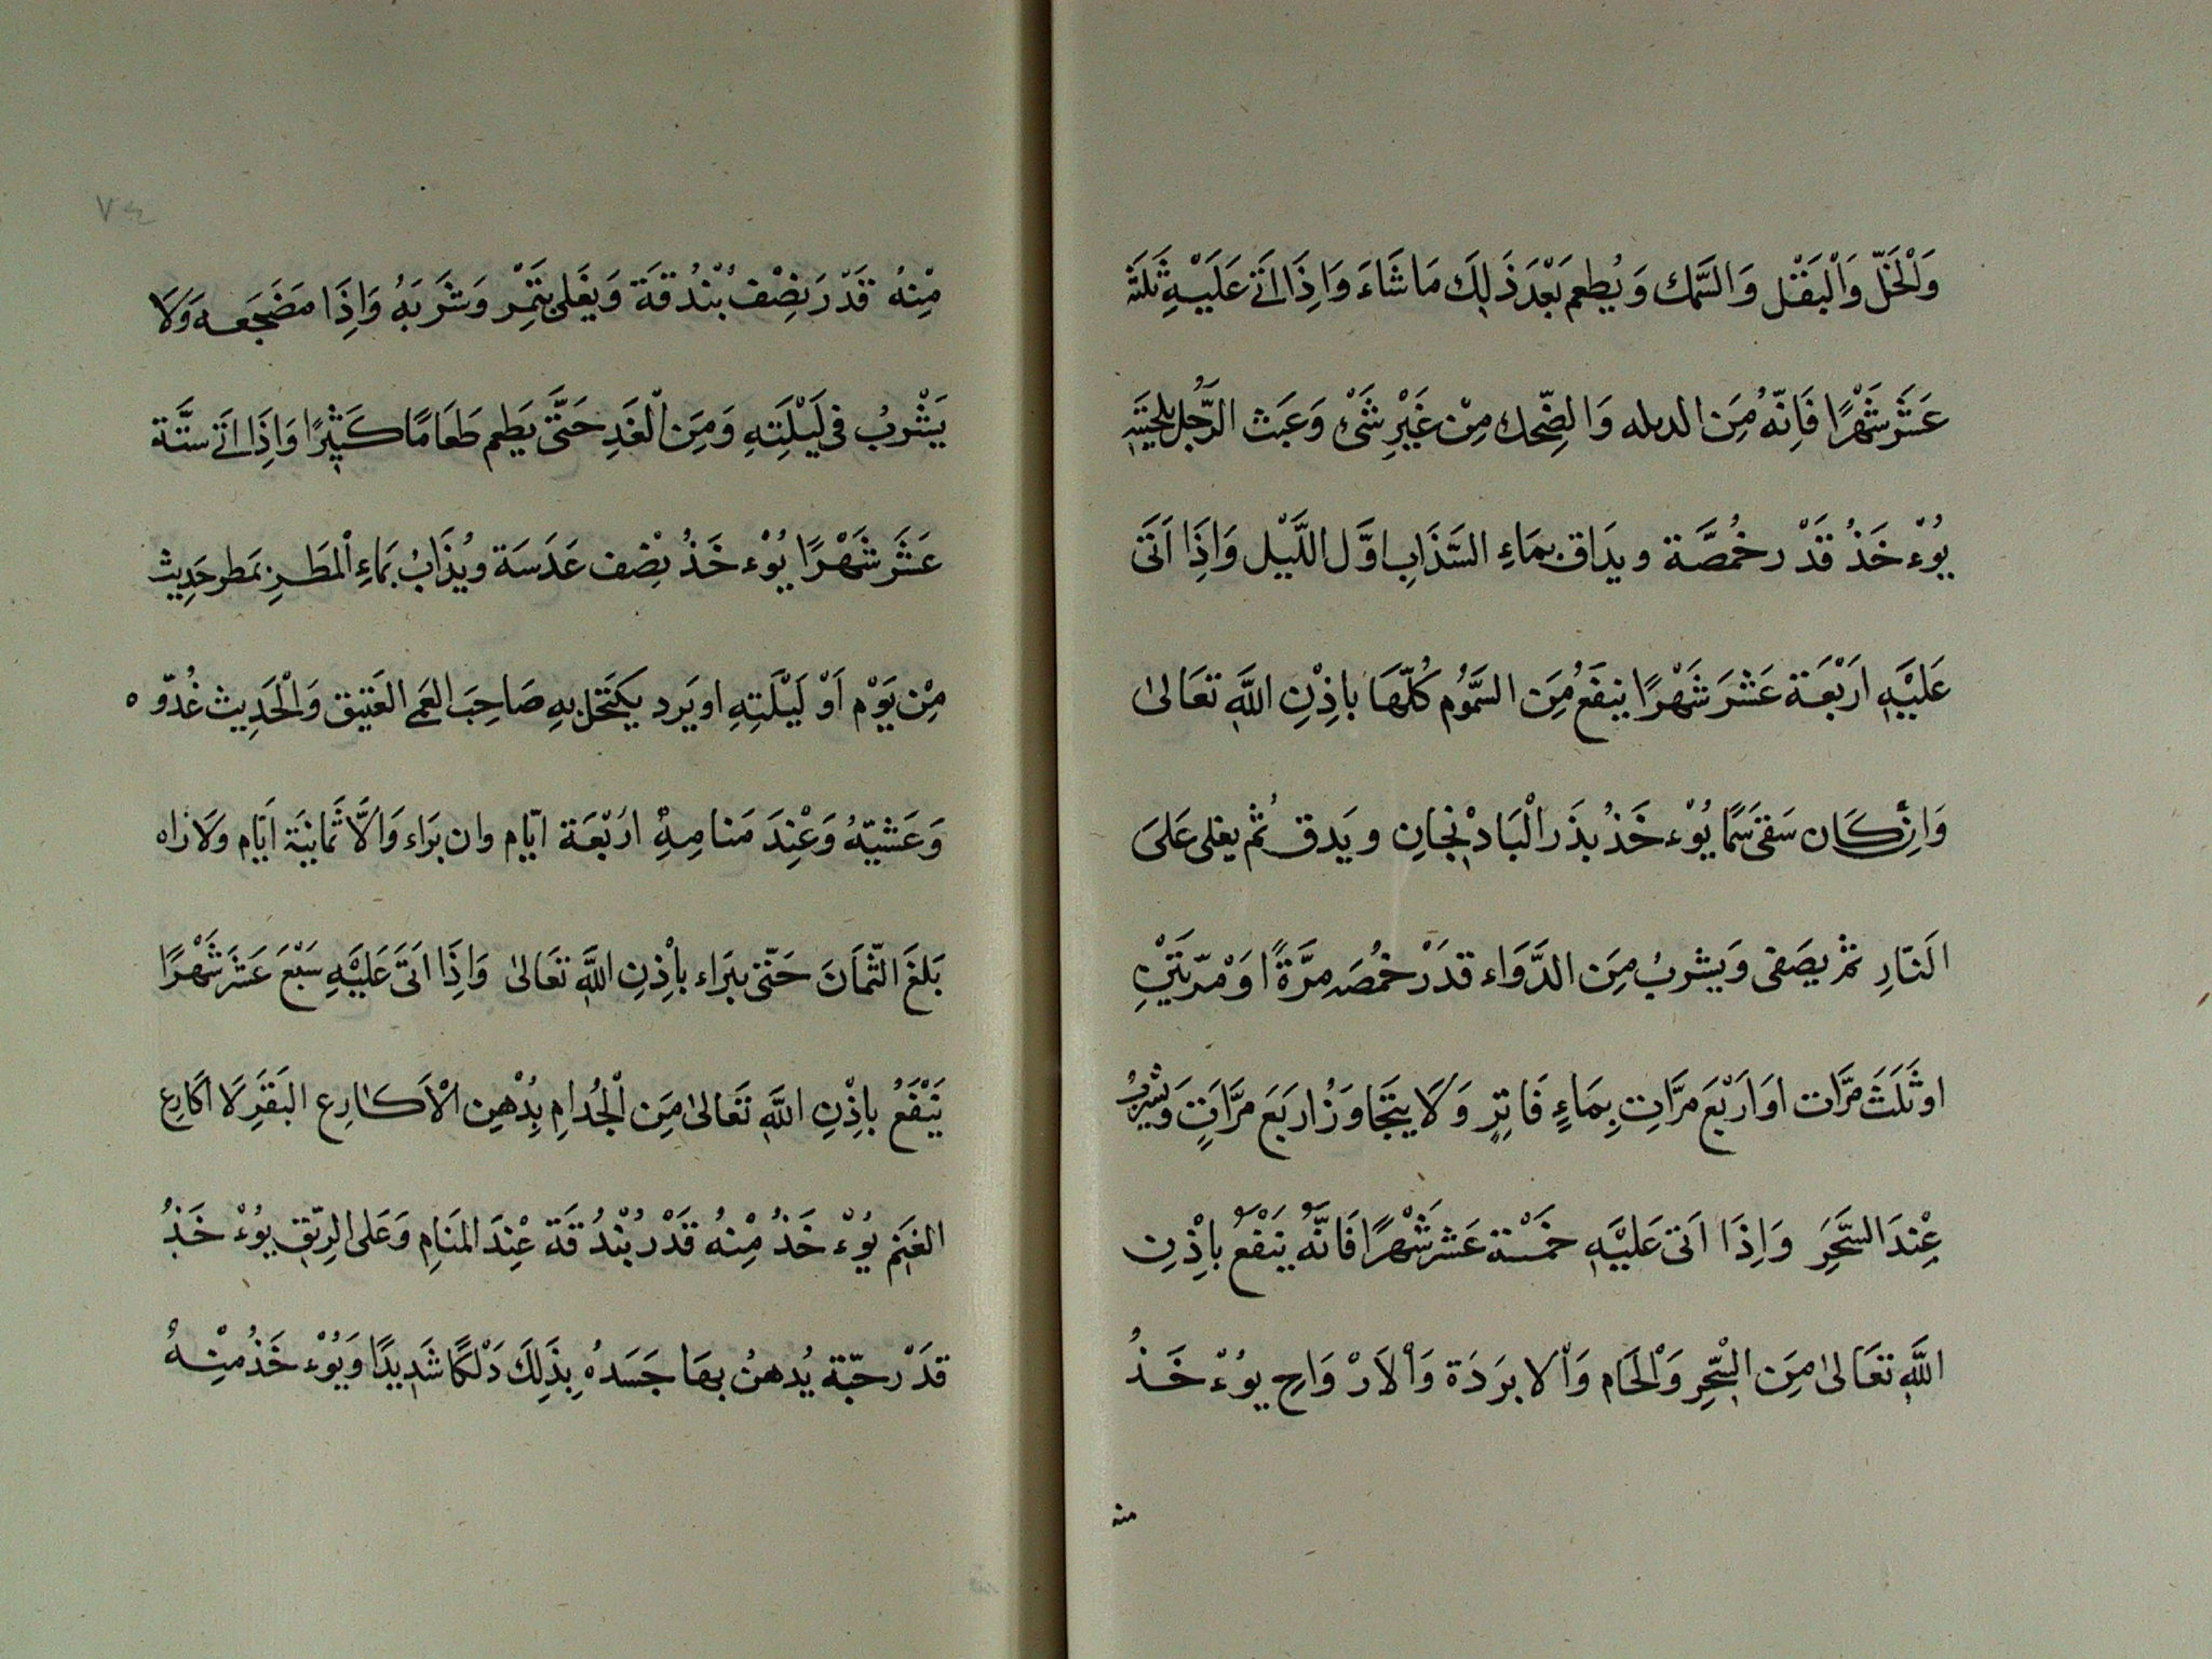 وَلْخَلّ وَاْلبَقْل وَالسَّمك وَيُطعم بَعْدَ ذَلِكَ مَا شَاءَ وَاِذَا اَتَى عَلَيْهِ ثَلَثَة
عَشَر شَهْرًا فَاِنّهُ مِنَ الدبله وَالضِّحك مِنْ غَيْرِ شَىْ وَعَبَث الرَّجُل بلِحْيَتِه
يُوْء خَذُ قَدْر حُمُصَّة ويدَاق بمَاءِ السَّذَابِ اوَّل اللَّيْل وَاِذَا اَتَى
عَلَيْهِ اَرْبَعَة عَشَرَ شَهْرًا ينفَعُ مِنَ السَّمُوُم كُلّهَا بِاِذْنِ اللَّهِ تعَالىٰ
وَاِنْ كَان سَقىَ سَمًّا يُوْء خَذُ بذَر الْبَادْنجَانِ ويَدق ثُم يغلى عَلىَ
النّارِ ثمْ يصَفى وَيشربُ مِنَ الدَّوَاء قدَرْ حُمّصَه مَرَّةً اوَ مْرّتَيْنِ
او ثَلَثَ مرَّات اوَ اَرْبَعَ مَرَّاتِ بِمَاءٍ فَاتِرٍ وَلَا يتجَاوَزُ اربَعَ مرَّاتٍ وَيَشرَبُ
عِنْدَ السَّحَرِ وَاِذَا اَتى عَليَهِ خَمْسَة عَشر شَهْرًا فَانَّهُ يَنفَعُ باِذْنِ
اللَّهِ تعَالىٰ مِنَ السِّحِر وَاْلحَام وَاْلا برَدَة وَاْلاَرْ وَاحِ يوُءْ خَذُ
منه
٧٤
مِنْهُ قَدْرَ نِصْف بُنْدُقَة وَيغَلى بتَمْر وَشَرَبَهُ وَاِذَا مَضَجَعه وَلَا
يَشْرَبُ فى لَيْلَتِهِ وَمِنَ اْلغَدِ حَتَّى يَطعم طَعَامًا كَثِيْرًا وَاِذَا اتَى ستَّة
عَشَر شَهْرًا يُوْء خَذُ نِصْف عَدَسَة ويُذَابُ بمَاءِ اْلمَطَرِ بمَطر حَدِيث
مِنْ يَوْم اَوْ لَيْلَتِهِ او يَرد يكتَحل بِهِ صَاحِبَ العَمى العَتِيق وَاْلحَدِيث غُدّو ه
وَعَشيّهُ وَعْنِدَ مَنامِهِ ارَبْعَة ايّام وان بَراء وَالَّا ثَمانيَة ايَام وَلَا زاه
بَلغَ الثّمَانَ حَتّى يبَراء بِاِذنِ اللَّهِ تعَالىٰ وَاِذَا اَتى عَلَيْهِ سَبْعَ عَشَر شَهْرًا
يَنْفَعُ بِاِذْنِ اللَّهِ تَعَالىٰ مِنَ اْلجُدامِ بِدُهْنِ اْلاَكارِع البَقَرِ لَا اكَارِع
الغَنَم يوُءْ خَذُ مِنْهُ قَدْر بُنْدُقَة عِنْدَ المنَامِ وَعَلى الرِيّقِ يوُءْ خَذُ
قدَرْ حَبّة يُدهنُ بهَا جَسَدهُ بِذَلِكَ دَلْكًا شَدِيدًا وَيُوْء خَذُ مِنْهُ